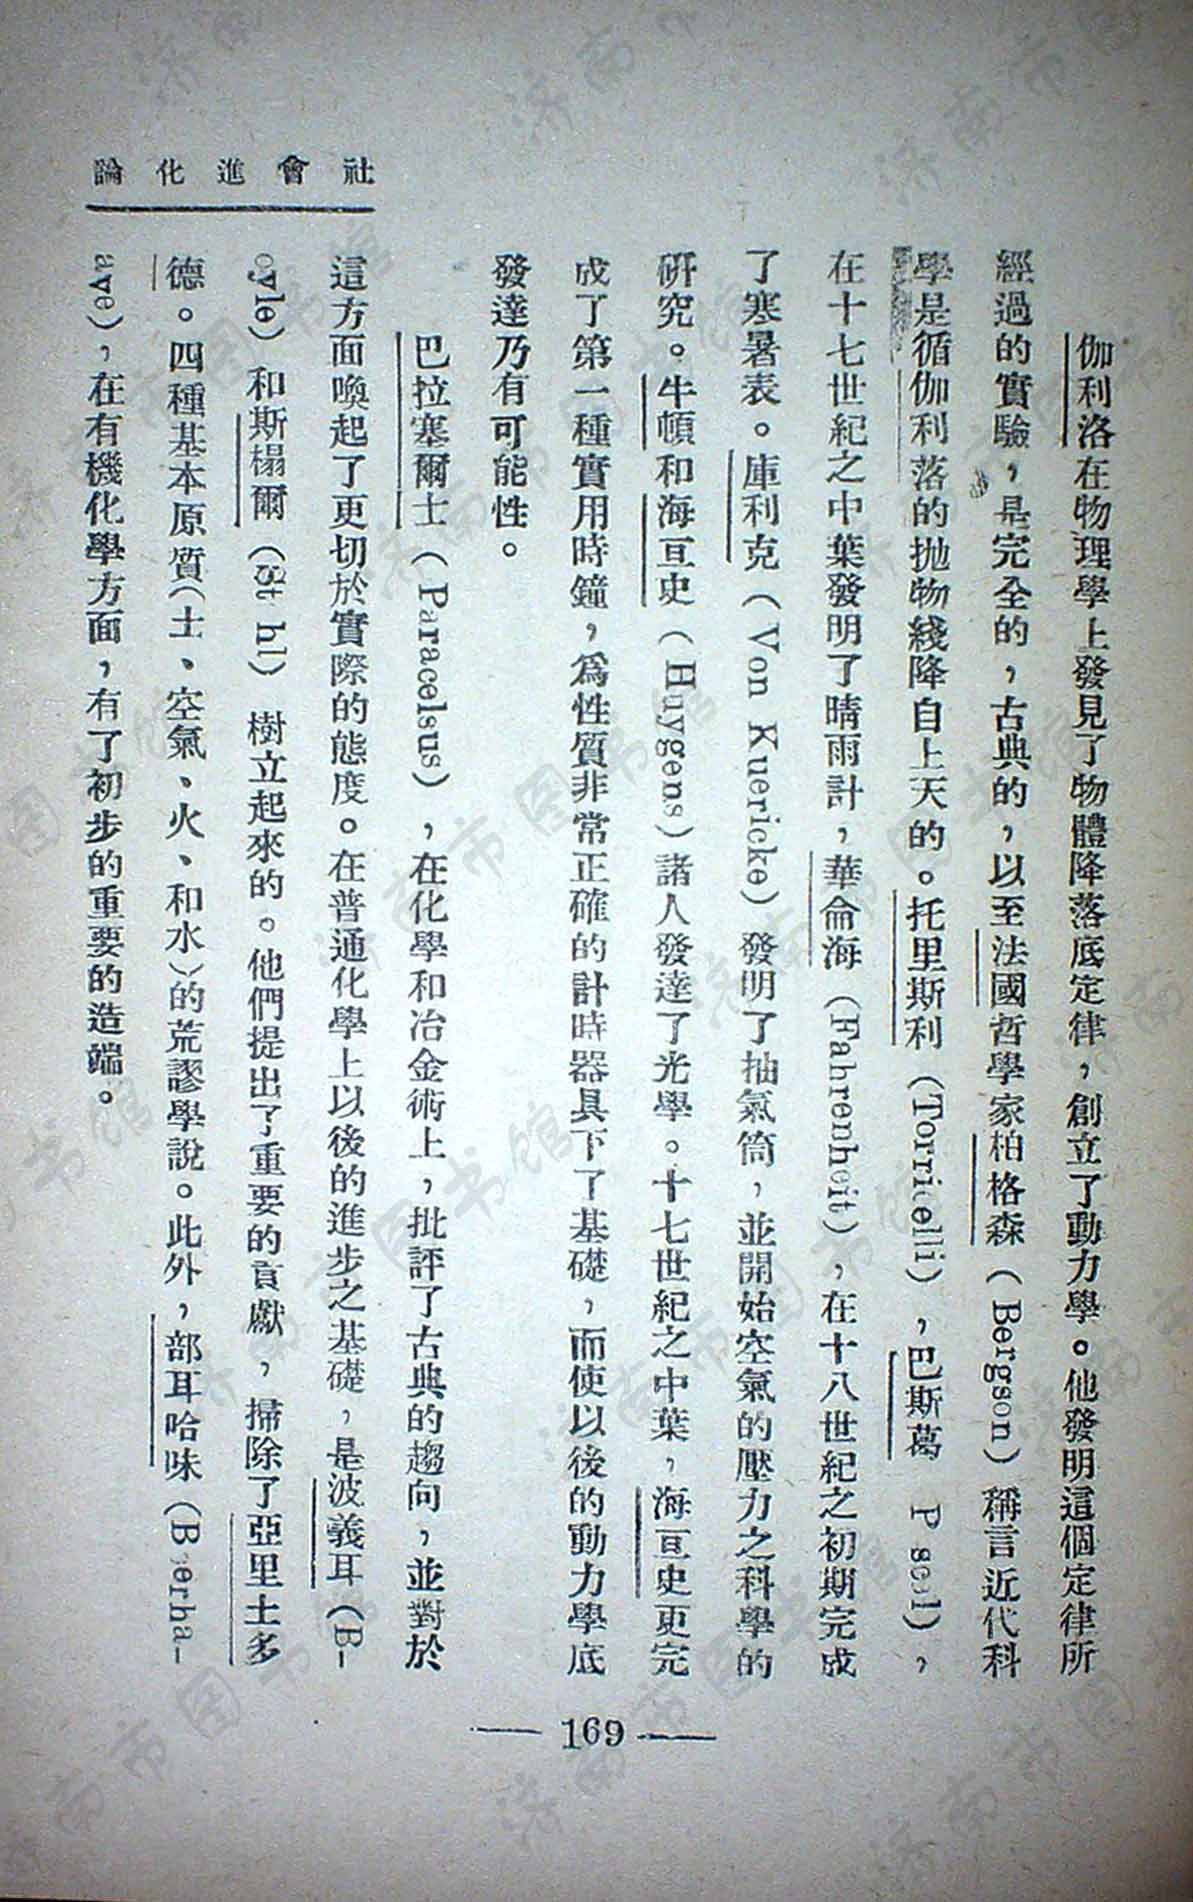 社會進化論
伽利洛在物理學上發見了物體降落底定律，創立了動力學。他發明這個定律所
經過的實驗，是完全的，古典的，以至法國哲學家柏格森（Bergson）稱言近代科
學是循伽利落的拋物綫降自上天的。托里斯利（Torricelli），巴斯葛 P sc l)，
在十七世紀之中葉發明了晴雨計，華侖海（Fahrenheit），在十八世紀之初期完成
了寒暑表。庫利克（Von Kuericke）發明了抽氣筒，並開始空氣的壓力之科學的
研究。牛頓和海亘史（Huygens）諸人發達了光學。十七世紀之中葉，海亘史更完
成了第一種實用時鐘，爲性質非常正確的計時器具下了基礎，而使以後的動力學底
發達乃有可能性。
巴拉塞爾士（Paracelsus），在化學和冶金術上，批評了古典的趨向，並對於
這方面喚起了更切於實際的態度。在普通化學上以後的進步之基礎，是波義耳（B-
oyle）和斯榻爾（St hl）樹立起來的。他們提出了重要的貢獻，掃除了亞里士多
德。四種基本原質（土、空氣、火、和水）的荒謬學說。此外，部耳哈味（Bœrha-
ave），在有機化學方面，有了初步的重要的造端。
— 169 —
济南市图书馆